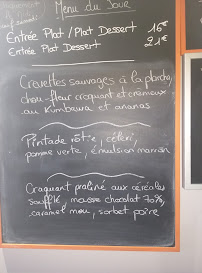 Menu du Jour
Entrée Plat / Plat Dessert 16€
Entrée Plat Dessert 21€
Crevettes sauvages à la plancha,
chou-fleur croquant et crémeux
au Kumbawa et ananas
Pintade rôtie, céleri,
pomme verte, émulsion marron
Craquant praliné aux céréales
soufflé, mousse chocolat 70%,
caramel mou, sorbet poire